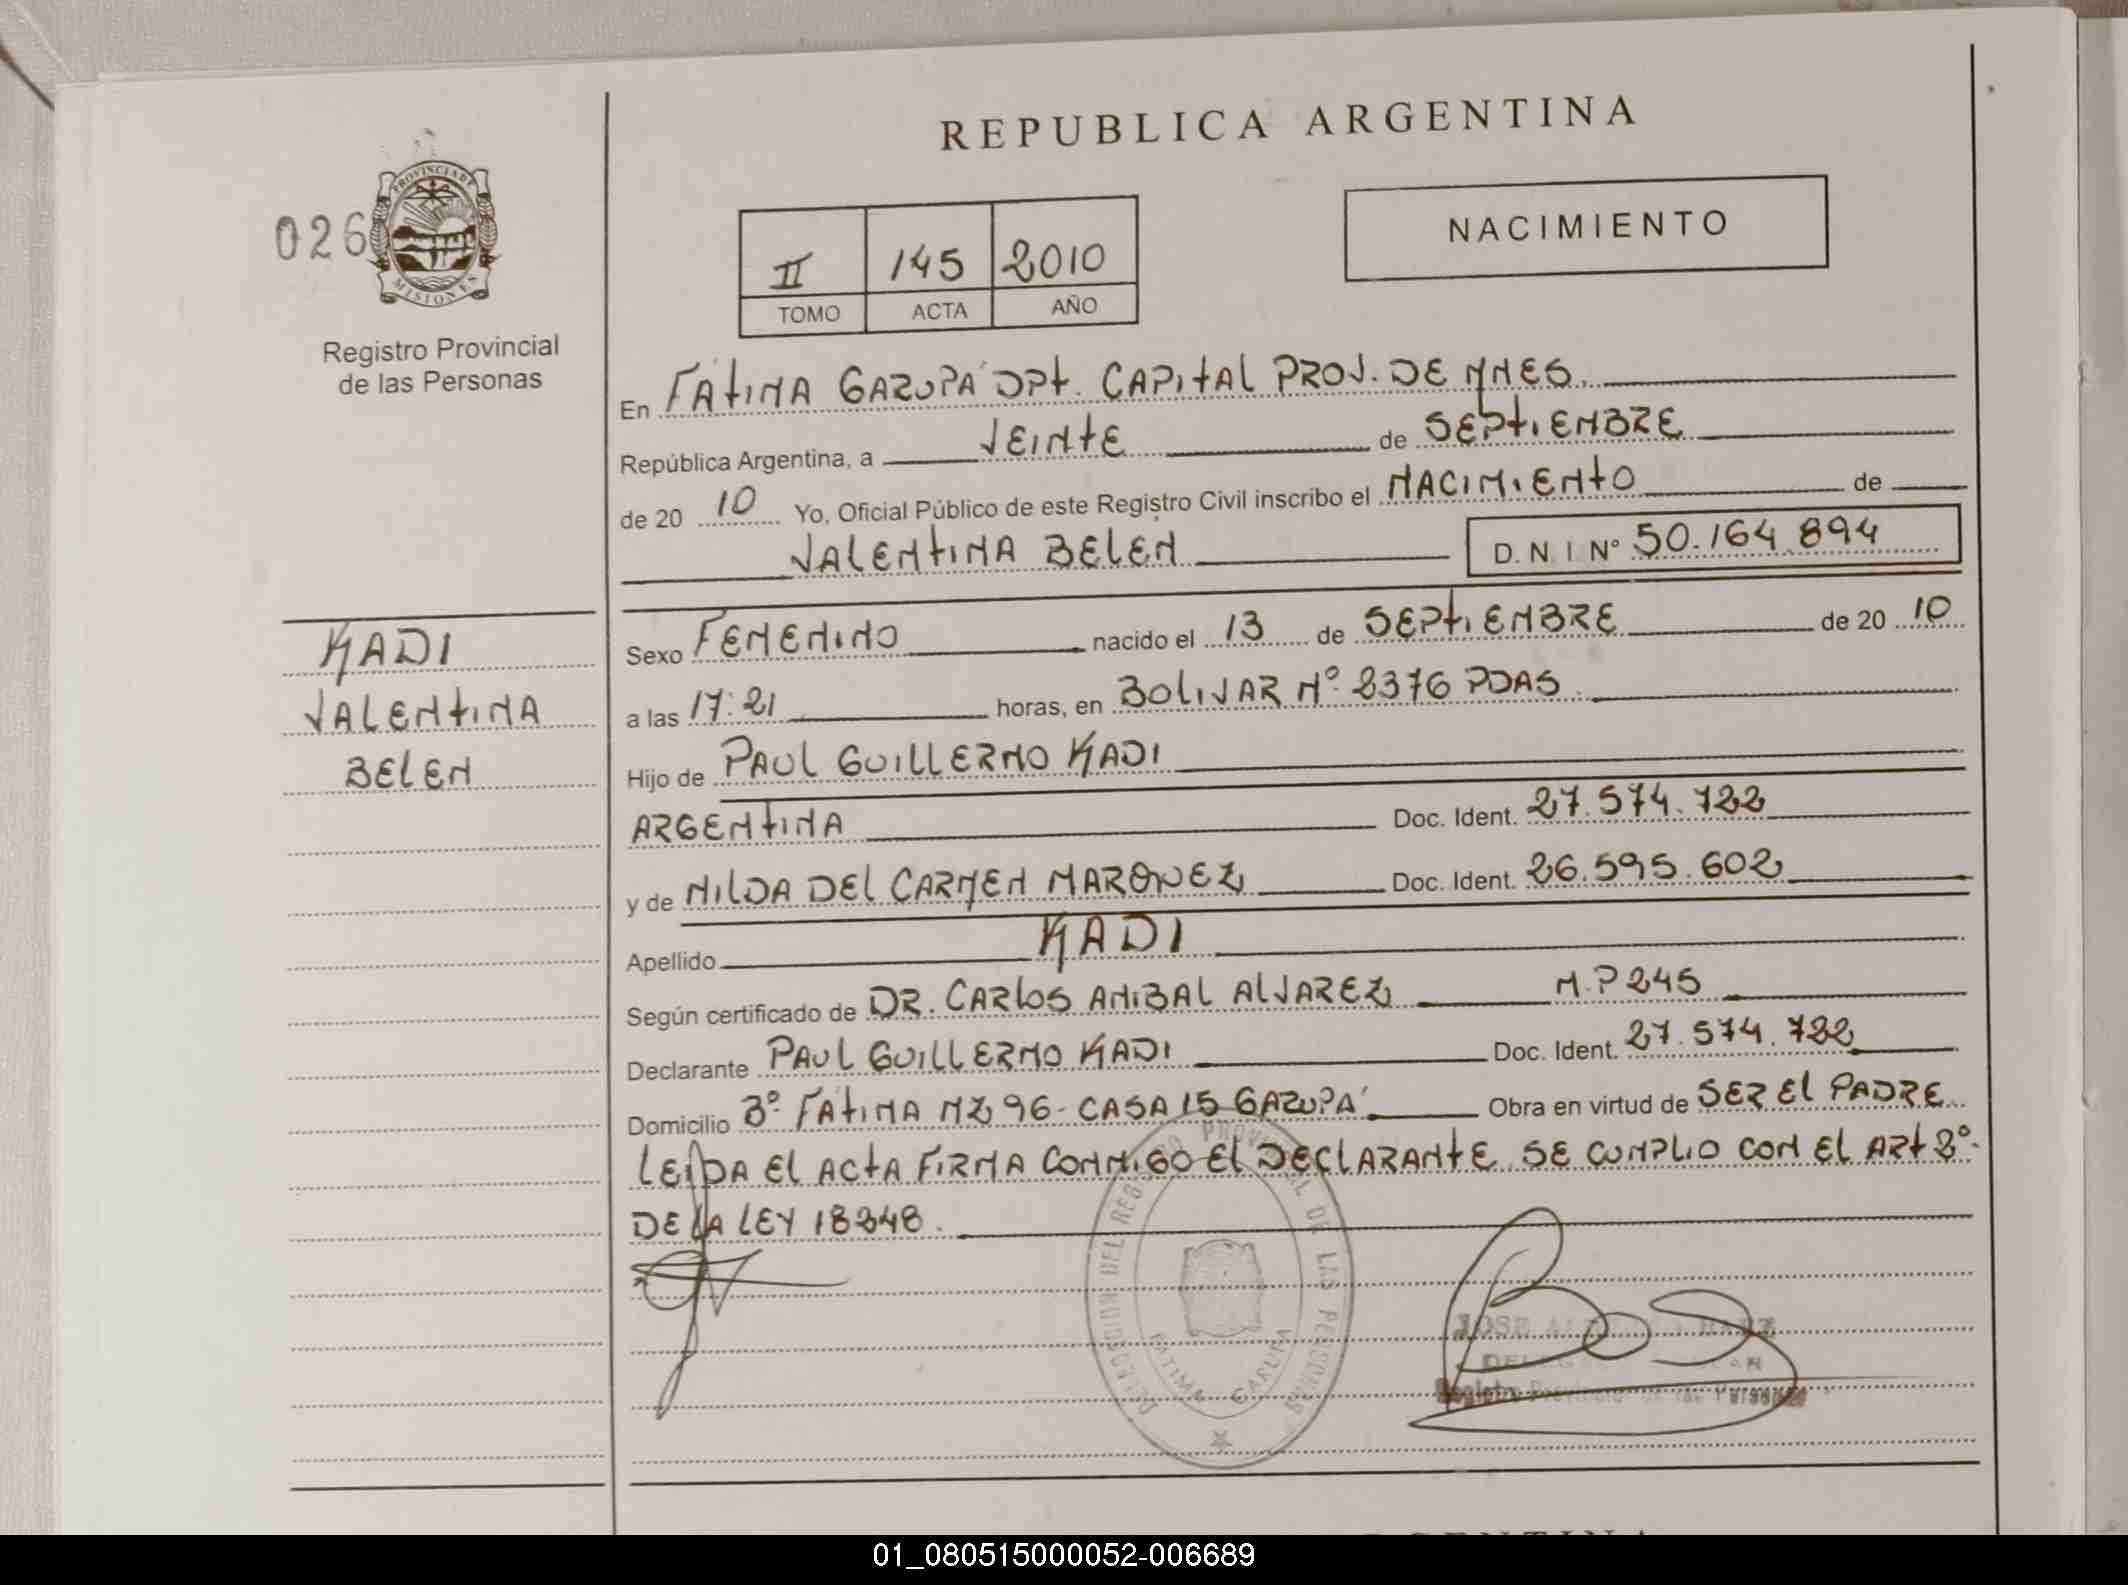 REPUBLICA ARGENTINA
026
PROVINCIA DE
MISIONES
Registro Provincial
de las Personas
II 145 2010
TOMO ACTA AÑO
NACIMIENTO
En FATIMA GARUPA DPT. CAPITAL PROV. DE MNES.
República Argentina, a VEINTE de SEPTIEMBRE
de 20 10 Yo, Oficial Público de este Registro Civil inscribo el NACIMIENTO de
VALENTINA BELEN D.N.I. Nº 50.164.894
KADI
VALENTINA
BELEN
Sexo FEMENINO nacido el 13 de SEPTIEMBRE de 20 10
a las 17:21 horas, en BOLIVAR Nº 2376 PDAS
Hijo de PAUL GUILLERMO KADI
ARGENTINA Doc. Ident. 27.574.722
y de NILDA DEL CARMEN MARQUEZ Doc. Ident. 26.595.602
Apellido KADI
Según certificado de DR. CARLOS ANIBAL ALVAREZ M.P 245
Declarante PAUL GUILLERMO KADI Doc. Ident. 27.574.722
Domicilio Bº FATIMA MZ 96- CASA 15 GARUPÁ Obra en virtud de SER EL PADRE
LEIDA EL ACTA FIRMA CONMIGO EL DECLARANTE. SE CUMPLIO CON EL ART 2º
DE LA LEY 18248.
DIRECCION DEL REGISTRO PROVINCIAL DE LAS PERSONAS
FATIMA GARUPA
JOSE
Registro Provincial de las Personas
01_080515000052-006689